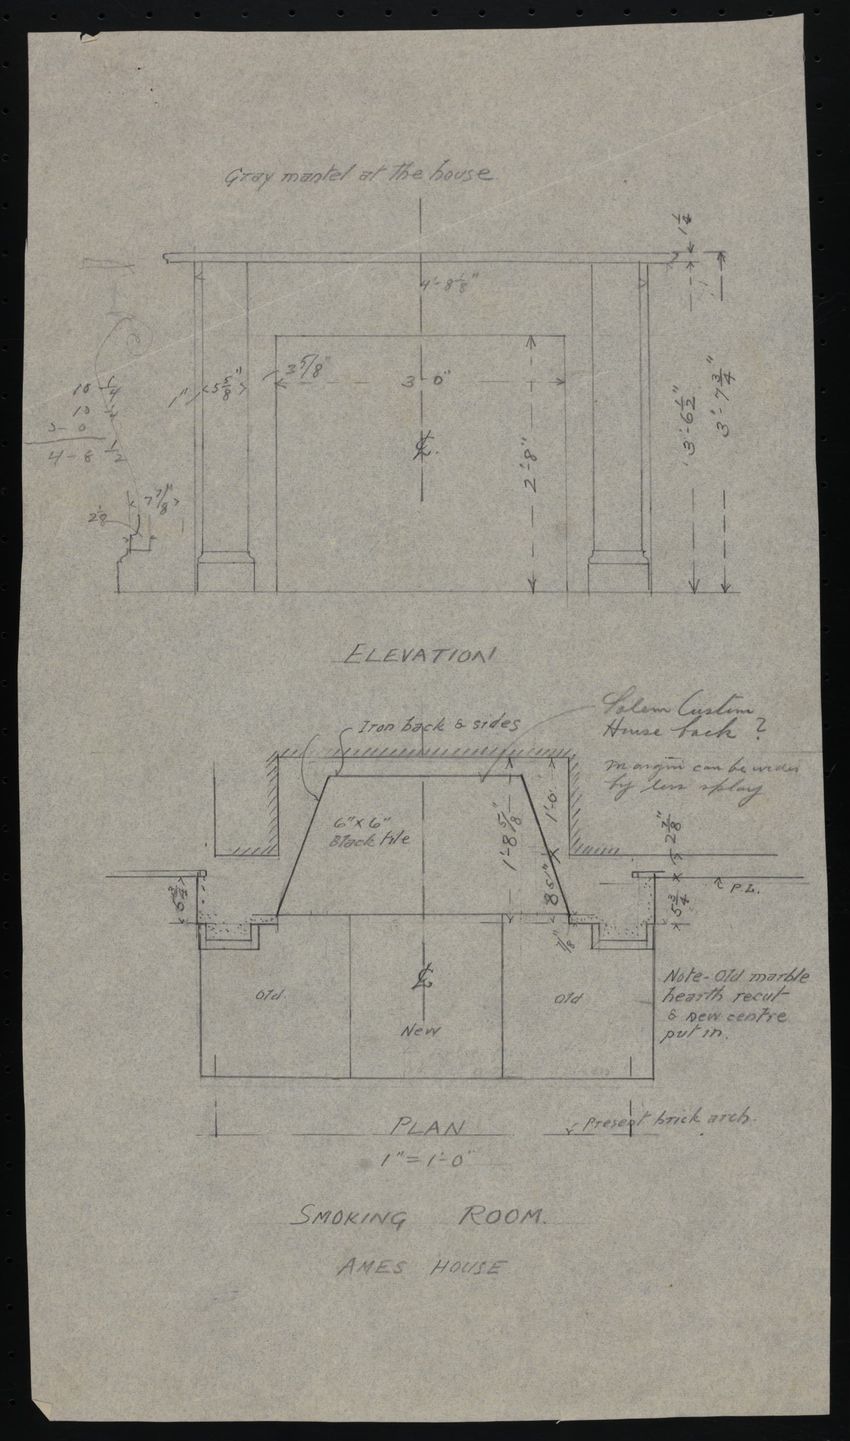 Gray mantel at the house.
1 1/4
4'-8 1/8"
3 5/8"
1"
5 5/8"
3'-0"
10 1/4
10 1/4
3-0
4-8 1/2
℄.
2'-8"
3'-6 1/2"
3'-7 3/4"
7 7/8"
2 1/8
ELEVATION
Iron back & sides
Salem Custom
House back ?
Margin can be wider
by less splay
6" x 6"
Black tile
1'-8 5/8"
1'-0"
8 5/8"
7/8"
5 3/4
5 3/4 x 5 7/8"
P.L.
Old
℄
New
Old
Note- Old marble
hearth recut
& new centre
put in.
PLAN
Present brick arch.
1" = 1'-0"
SMOKING ROOM.
AMES HOUSE